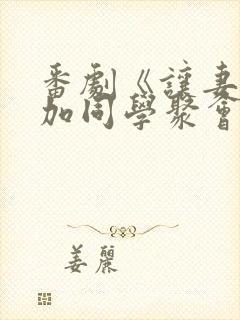 番劇《讓妻
加同學聚會
姜麗